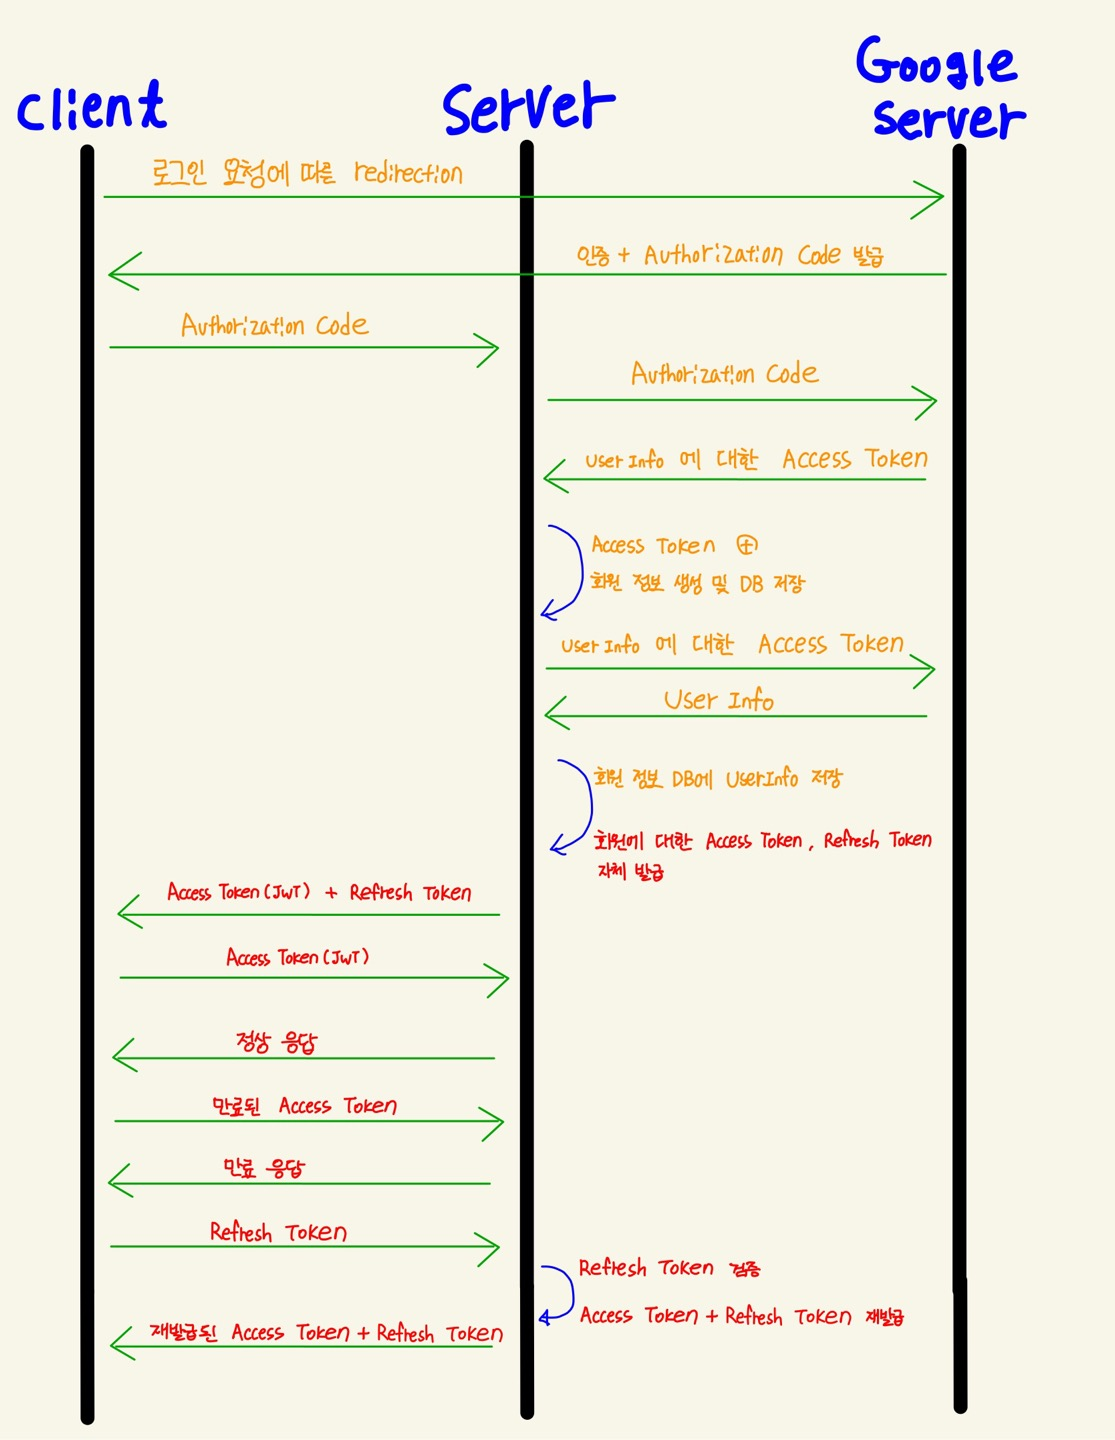 Client
Server
Google
Server
로그인 요청에 따른 redirection
인증 + Authorization Code 발급
Authorization Code
Authorization Code
User Info 에 대한 Access Token
Access Token ⊕
회원 정보 생성 및 DB 저장
User Info 에 대한 Access Token
User Info
회원 정보 DB에 UserInfo 저장
회원에 대한 Access Token, Refresh Token
자체 발급
Access Token (JWT) + Refresh Token
Access Token (JWT)
정상 응답
만료된 Access Token
만료 응답
Refresh Token
Refresh Token 검증
Access Token + Refresh Token 재발급
재발급된 Access Token + Refresh Token